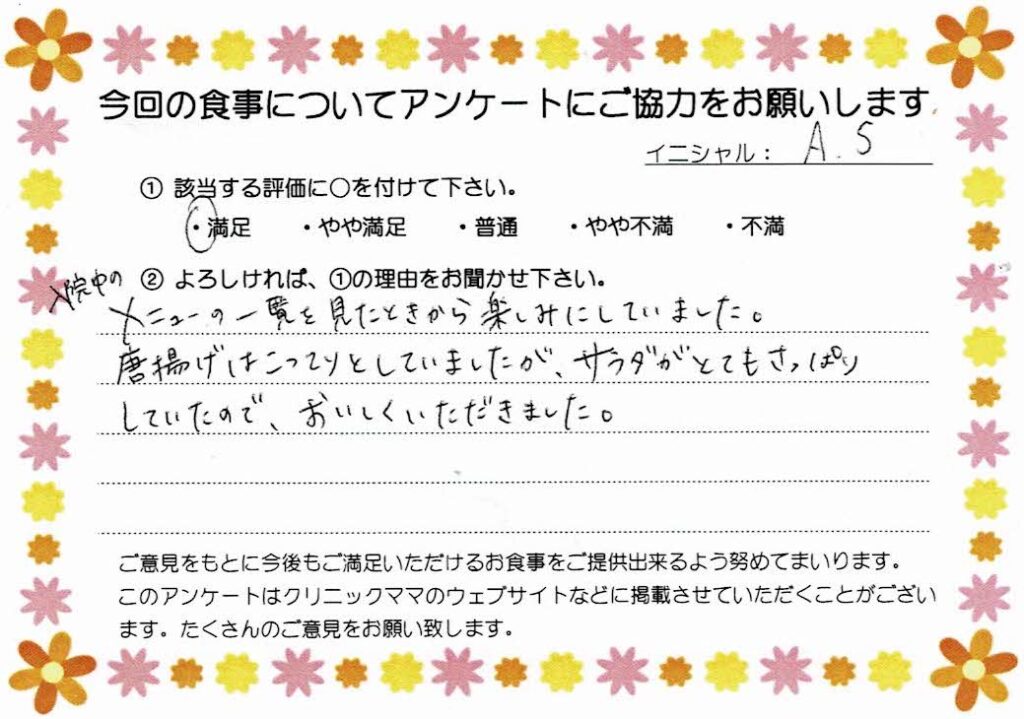 今回の食事についてアンケートにご協力をお願いします
イニシャル: A.S
① 該当する評価に○を付けて下さい。
・満足 ・やや満足 ・普通 ・やや不満 ・不満
② よろしければ、①の理由をお聞かせ下さい。
入院中の
メニューの一覧を見たときから楽しみにしていました。
唐揚げはこってりとしていましたが、サラダがとてもさっぱり
していたので、おいしくいただきました。
ご意見をもとに今後もご満足いただけるお食事をご提供出来るよう努めてまいります。
このアンケートはクリニックママのウェブサイトなどに掲載させていただくことがござい
ます。たくさんのご意見をお願い致します。